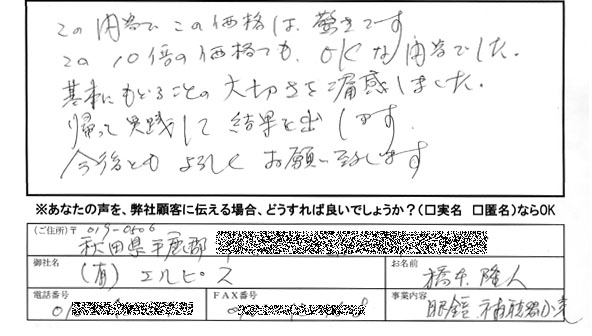 この内容でこの価格は、驚きです
この10倍の価格でも、OKな内容でした。
基本にもどることの大切さを痛感しました。
帰って実践して結果を出します。
今後ともよろしくお願い致します
※あなたの声を、弊社顧客に伝える場合、どうすれば良いでしょうか？(□実名 □匿名)ならOK
(ご住所)〒019-0506
秋田県平鹿郡
御社名 お名前
(有)エルピス 橋本隆人
電話番号 FAX番号 事業内容
0 眼鏡 補聴器小売